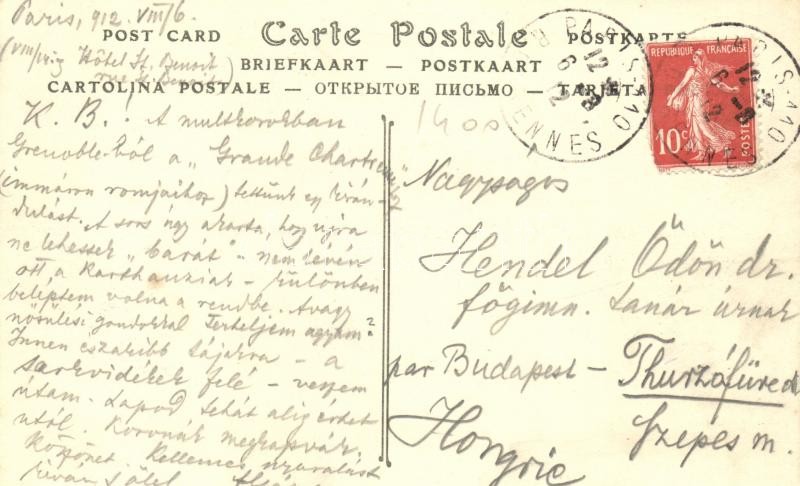 Paris, 912. VIII/6.
(VIII/14ig Hôtel St. Benoit
rue St. Benoit)
POST CARD Carte Postale POSTKARTE
BRIEFKAART — POSTKAART
CARTOLINA POSTALE — ОТКРЫТОЕ ПИСЬМО — TARJETA
K. B.! A multkorokban
Grenoble-ból a „Grande Chartreuse"
romjaihoz) tettünk egy kirán-
dulást. A sors úgy akarta, hogy újra
ne lehessek „barát" - nem lévén
ott, a Karthauziak - különben
beléptem volna a rendbe. Avagy
nősülési gondokkal terheljem agyam?
Innen északibb tájakra - a
sarkvidékek felé - veszem
útam. Lapod tehát alig érhet
utól. Koronák megkapvák.
Köszönet. Kellemes nyaralást
kíván
1400
Nagyságos
Hendel Ödön dr.
főgimn. tanár úrnak
par Budapest - Thurzófüred
Hongrie Szepes m.
REPUBLIQUE FRANÇAISE
10c
POSTES
PARIS-110
R. DE RENNES
PARIS-110